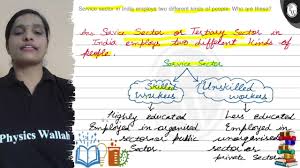 Service sector in India employs two different kinds of people. Who are these?
Ans Sevice Sector or Tertiary Sector in
India employs two different kinds of
people.
Service Sector
Skilled workers
Unskilled workers
Highly educated
Less educated
Employed in organised
Employed in
sector or public
unorganised
Sector
sector or
private Sector
Physics Wallah